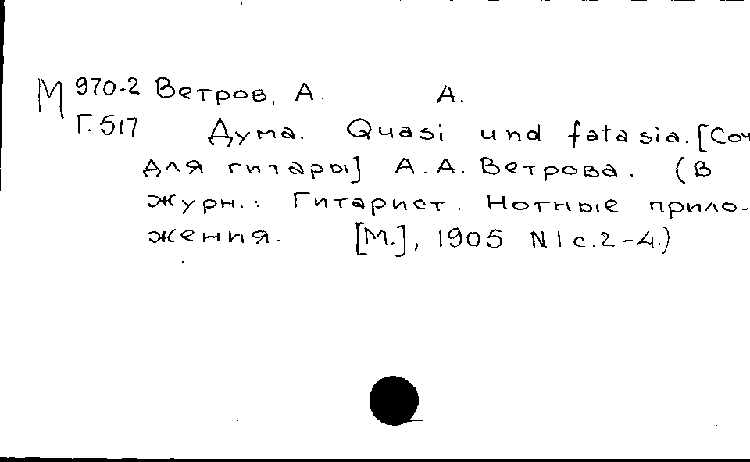 М 970-2 Ветров, А. А.
Г.517 Дума. Quasi und fatasia. [Соч
для гитары] А.А. Ветрова. (В
журн.: Гитарист. Нотные прило-
жения. [М.], 1905 N 1 с.2-4.)